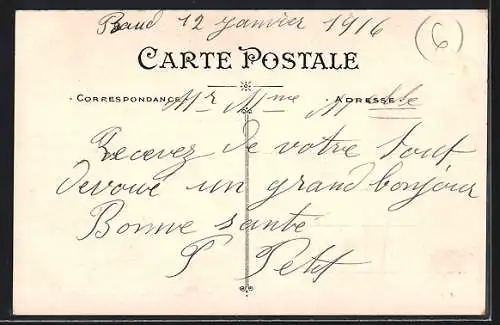 Baud 12 Janvier 1916
6
CARTE POSTALE
CORRESPONDANCE ADRESSE
Mr Mme Melle
Recevez de votre tout
devoué un grand bonjour
Bonne santé
P Petit